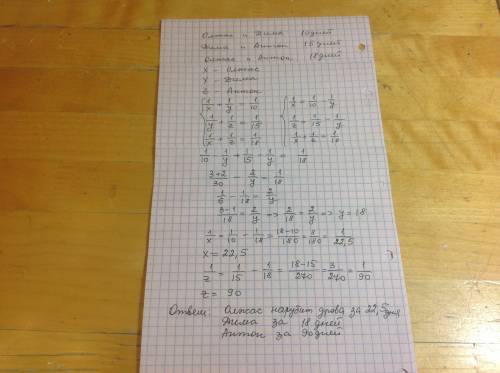 Олжас и Дима 10 дней
Дима и Антон 15 дней
Олжас и Антон 18 дней
X - Олжас
Y - Дима
Z - Антон
{ 1/x + 1/y = 1/10 { 1/x = 1/10 - 1/y
1/y + 1/z = 1/15 1/z = 1/15 - 1/y
1/x + 1/z = 1/18 1/x + 1/z = 1/18
1/10 - 1/y + 1/15 - 1/y = 1/18
3+2/30 - 2/y = 1/18
1/6 - 1/18 = 2/y
3-1/18 = 2/y => 2/18 = 2/y => y = 18
1/x = 1/10 - 1/18 = 18-10/180 = 8/180 = 1/22,5
x = 22,5
1/z = 1/15 - 1/18 = 18-15/270 = 3/270 = 1/90
z = 90
Ответ: Олжас нарубит дрова за 22,5 дня
Дима за 18 дней
Антон за 90 дней